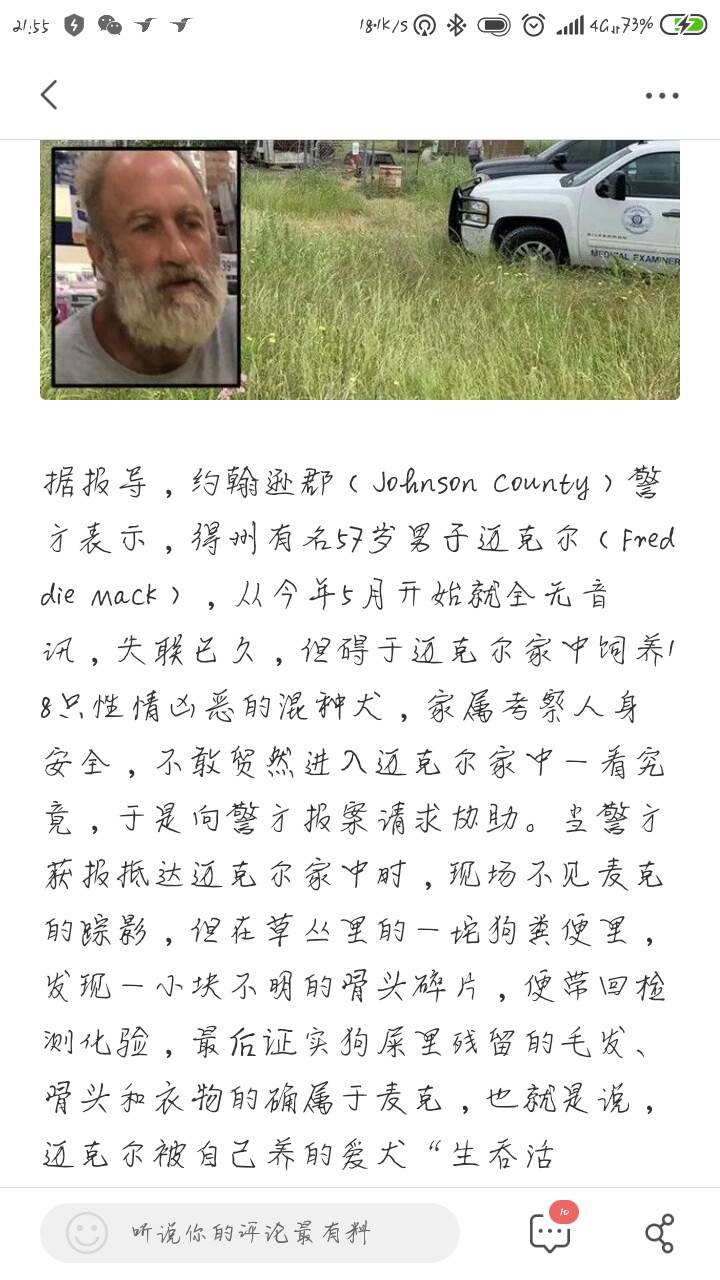 21:55
18.1K/S
4G
73%
MEDICAL EXAMINER
据报导，约翰逊郡（Johnson County）警
方表示，得州有名57岁男子迈克尔（Fred
die mack），从今年5月开始就全无音
讯，失联已久，但碍于迈克尔家中饲养1
8只性情凶恶的混种犬，家属考察人身
安全，不敢贸然进入迈克尔家中一看究
竟，于是向警方报案请求协助。当警方
获报抵达迈克尔家中时，现场不见麦克
的踪影，但在草丛里的一坨狗粪便里，
发现一小块不明的骨头碎片，便带回检
测化验，最后证实狗屎里残留的毛发、
骨头和衣物的确属于麦克，也就是说，
迈克尔被自己养的爱犬“生吞活
听说你的评论最有料
10